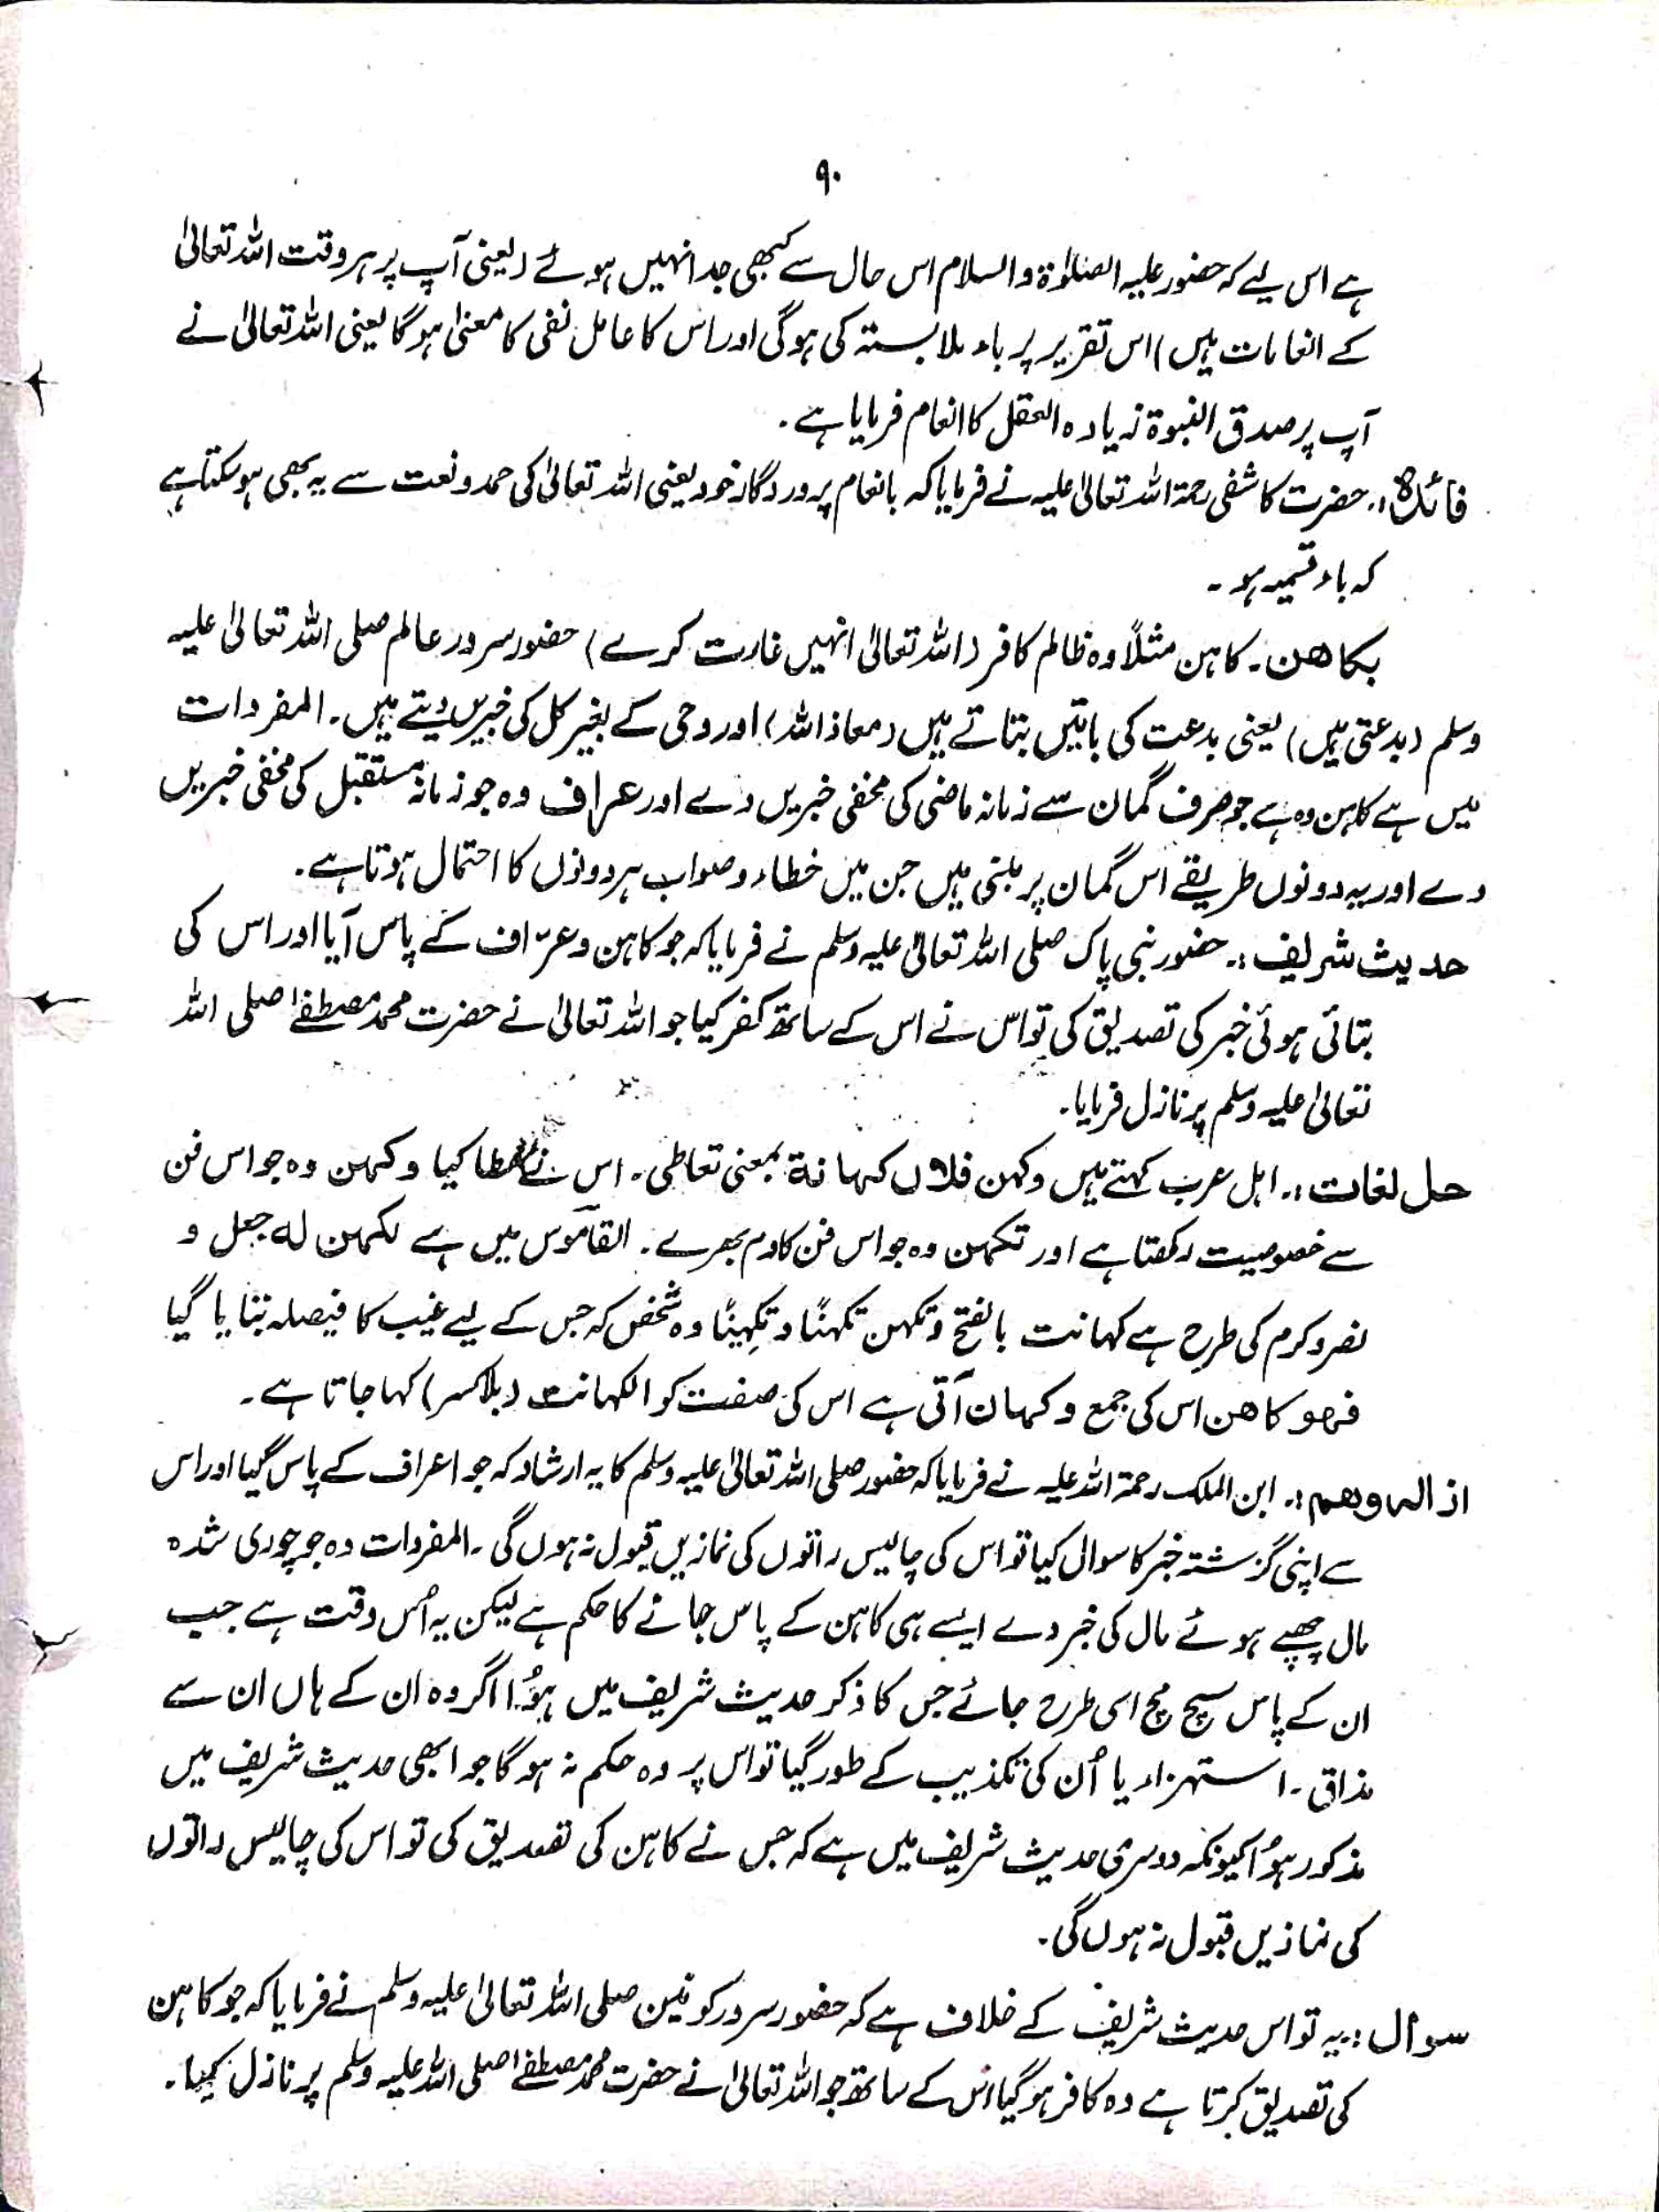 ۹۰
ہے اس لیے کہ حضور علیہ الصلوٰۃ والسلام اس حال سے کبھی جدا نہیں ہوئے (یعنی آپ پر ہر وقت اللہ تعالیٰ
کے انعامات ہیں) اس تقریر پر باء ملابستہ کی ہوگی اور اس کا عامل نفی کا معنیٰ ہوگا یعنی اللہ تعالیٰ نے
آپ پر صدق النبوۃ زیادہ العقل کا انعام فرمایا ہے۔
فائدہ:۔ حضرت کاشفی رحمۃ اللہ تعالیٰ علیہ نے فرمایا کہ بانعام پروردگار خود یعنی اللہ تعالیٰ کی حمد و نعت سے یہ بھی ہو سکتا ہے
کہ باء قسمیہ ہو۔
بکاھن۔ کاہن مثلاً وہ ظالم کافر (اللہ تعالیٰ انہیں غارت کرے) حضور سرور عالم صلی اللہ تعالیٰ علیہ
وسلم (بدعتی ہیں) یعنی بدعت کی باتیں بتاتے ہیں (معاذ اللہ) اور وحی کے بغیر کل کی خبریں دیتے ہیں۔ المفردات
میں ہے کاہن وہ ہے جو صرف گمان سے زمانہ ماضی کی مخفی خبریں دے اور عراف وہ جو زمانہ مستقبل کی مخفی خبریں
دے اور یہ دونوں طریقے اس گمان پر مبنی ہیں جن میں خطاء و صواب ہر دونوں کا احتمال ہوتا ہے۔
حدیث شریف:۔ حضور نبی پاک صلی اللہ تعالیٰ علیہ وسلم نے فرمایا کہ جو کاہن و عرّاف کے پاس آیا اور اس کی
بتائی ہوئی خبر کی تصدیق کی تو اس نے اس کے ساتھ کفر کیا جو اللہ تعالیٰ نے حضرت محمد مصطفےٰ صلی اللہ
تعالیٰ علیہ وسلم پر نازل فرمایا۔
حل لغات:۔ اہل عرب کہتے ہیں وکہن فلاں کہانۃ بمعنی تعاطی۔ اس نے کیا وکہن وہ جو اس فن
سے خصوصیت رکھتا ہے اور تکہن وہ جو اس فن کا دم بھرے۔ القاموس میں ہے لکہن لہ جعل و
نصر و کرم کی طرح ہے کہانت بالفتح و تکہن تکہنًا و تکہینًا وہ شخص کہ جس کے لیے غیب کا فیصلہ بتایا گیا
فہو کاھن اس کی جمع و کہان آتی ہے اس کی صفت کو الکہانت (بلاکسر) کہا جاتا ہے۔
ازالہ وھم:۔ ابن الملک رحمۃ اللہ علیہ نے فرمایا کہ حضور صلی اللہ تعالیٰ علیہ وسلم کا یہ ارشاد کہ جو اعراف کے پاس گیا اور اس
سے اپنی گزشتہ خبر کا سوال کیا تو اس کی چالیس راتوں کی نمازیں قبول نہ ہوں گی۔ المفردات وہ جو چوری شدہ
مال چھپے ہوئے مال کی خبر دے ایسے ہی کاہن کے پاس جانے کا حکم ہے لیکن یہ اُس وقت ہے جب
ان کے پاس سچ مچ اسی طرح جائے جس کا ذکر حدیث شریف میں ہؤا اگر وہ ان کے ہاں ان سے
مذاق۔ استہزاء یا اُن کی تکذیب کے طور گیا تو اس پر وہ حکم نہ ہو گا جو ابھی حدیث شریف میں
مذکور ہؤا کیونکہ دوسری حدیث شریف میں ہے کہ جس نے کاہن کی تصدیق کی تو اس کی چالیس راتوں
کی نمازیں قبول نہ ہوں گی۔
سوال:۔ یہ تو اس حدیث شریف کے خلاف ہے کہ حضور سرور کونین صلی اللہ تعالیٰ علیہ وسلم نے فرمایا کہ جو کاہن
کی تصدیق کرتا ہے وہ کافر ہو گیا اس کے ساتھ جو اللہ تعالیٰ نے حضرت محمد مصطفےٰ صلی اللہ علیہ وسلم پر نازل کیا۔